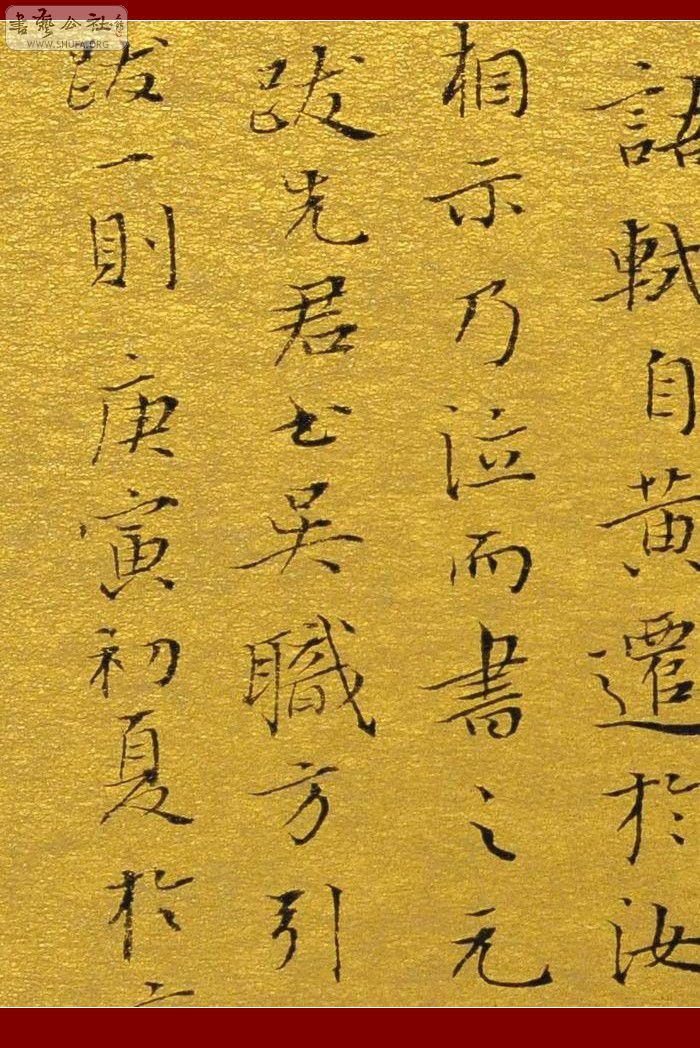 書藝公社
WWW.SHUFA.ORG
軾自黃遷於汝
相示乃泣而書之元
跋先君书吳職方引
跋一則庚寅初夏於